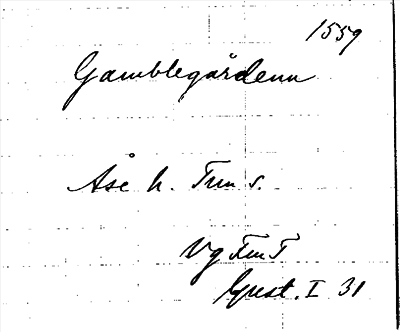 1559
Gamblegårdenn
Åse h. Tun s.
Vg FmT
Gust. I 31